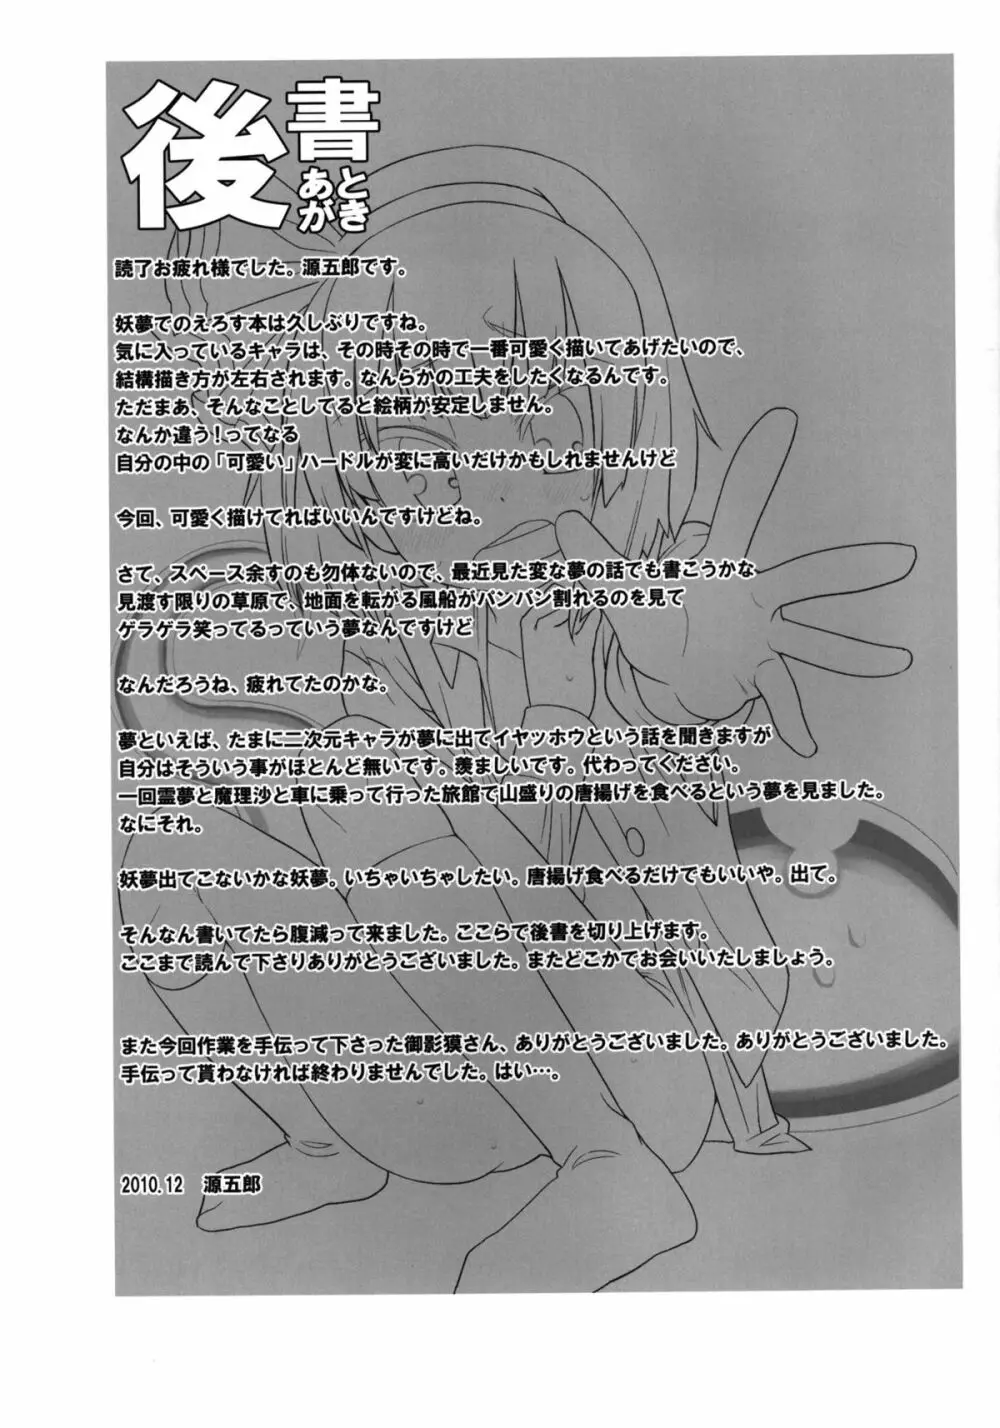 後書
あとがき
読了お疲れ様でした。源五郎です。
妖夢でのえろす本は久しぶりですね。
気に入っているキャラは、その時その時で一番可愛く描いてあげたいので、
結構描き方が左右されます。なんらかの工夫をしたくなるんです。
ただまあ、そんなことしてると絵柄が安定しません。
なんか違う!ってなる
自分の中の「可愛い」ハードルが変に高いだけかもしれませんけど
今回、可愛く描けてればいいんですけどね。
さて、スペース余すのも勿体ないので、最近見た変な夢の話でも書こうかな
見渡す限りの草原で、地面を転がる風船がパンパン割れるのを見て
ゲラゲラ笑ってるっていう夢なんですけど
なんだろうね、疲れてたのかな。
夢といえば、たまに二次元キャラが夢に出てイヤッホウという話を聞きますが
自分はそういう事がほとんど無いです。羨ましいです。代わってください。
一回霊夢と魔理沙と車に乗って行った旅館で山盛りの唐揚げを食べるという夢を見ました。
なにそれ。
妖夢出てこないかな妖夢。いちゃいちゃしたい。唐揚げ食べるだけでもいいや。出て。
そんなん書いてたら腹減って来ました。ここらで後書を切り上げます。
ここまで読んで下さりありがとうございました。またどこかでお会いいたしましょう。
また今回作業を手伝って下さった御影獏さん、ありがとうございました。ありがとうございました。
手伝って貰わなければ終わりませんでした。はい…。
2010.12 源五郎